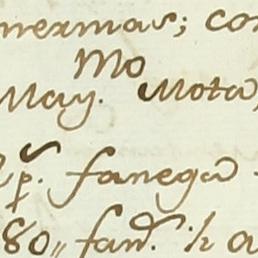 mermas; co
Mo
May. Mota,
p. fanega
80,, fan. ½ a